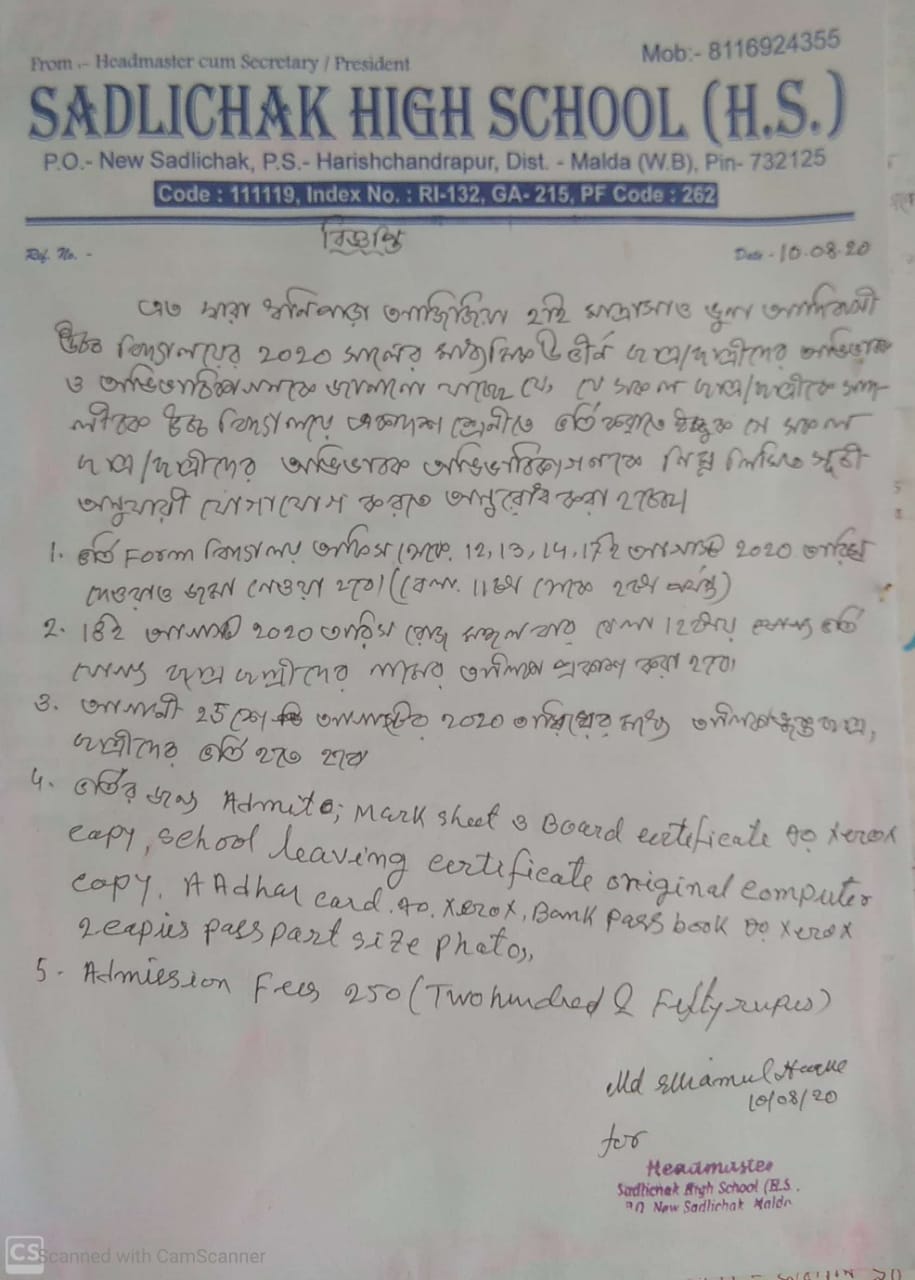 From :- Headmaster cum Secretary / President
Mob:- 8116924355
SADLICHAK HIGH SCHOOL (H.S.)
P.O.- New Sadlichak, P.S.- Harishchandrapur, Dist. - Malda (W.B), Pin- 732125
Code : 111119, Index No. : RI-132, GA- 215, PF Code : 262
বিজ্ঞপ্তি
Ref. No. -
Date - 10.08.20
এত দ্বারা হাই মাদ্রাসা ও আদিবাসী
উচ্চ বিদ্যালয়ের 2020 সালের মাধ্যমিক উত্তীর্ন ছাত্র/ছাত্রীদের অভিভাবক
ও অভিভাবিকাগনকে জানানো যাচ্ছে যে, যে সকল ছাত্র/ছাত্রীকে সাদ-
লীচক উচ্চ বিদ্যালয়ে একাদশ শ্রেনীতে ভর্তি করাতে ইচ্ছুক সে সকল
ছাত্র/ছাত্রীদের অভিভাবক অভিভাবিকাগনকে নিম্ন লিখিত সূচী
অনুযায়ী যোগাযোগ করতে অনুরোধ করা হচ্ছে।
1. ভর্তি Form বিদ্যালয় অফিস থেকে 12, 13, 14, 17ই আগস্ট 2020 তারিখ
দেওয়া ও জমা নেওয়া হবে। (বেলা 11টা থেকে 2টা পর্যন্ত)
2. 18ই আগস্ট 2020 তারিখ রোজ মঙ্গলবার বেলা 12টায় ভর্তি
যোগ্য ছাত্র ছাত্রীদের নামের তালিকা প্রকাশ করা হবে।
3. আগামী 25শে আগস্টের 2020 তারিখের মধ্যে তালিকাভুক্ত ছাত্র,
ছাত্রীদের ভর্তি হতে হবে
4. ভর্তির জন্য Admite, Mark sheet ও Board certeficate এর xerox
capy, school leaving certificate original computer
copy. AAdhar card. এর. xerox, Bank pass book এর xerox
2 capies pass part size photos,
5. Admission Fees 250 (Two hundred & Fifty rupees)
Md
10/08/20
for
Headmaster
Sadlichak High School (H.S.
P.O New Sadlichak Malda
CS Scanned with CamScanner